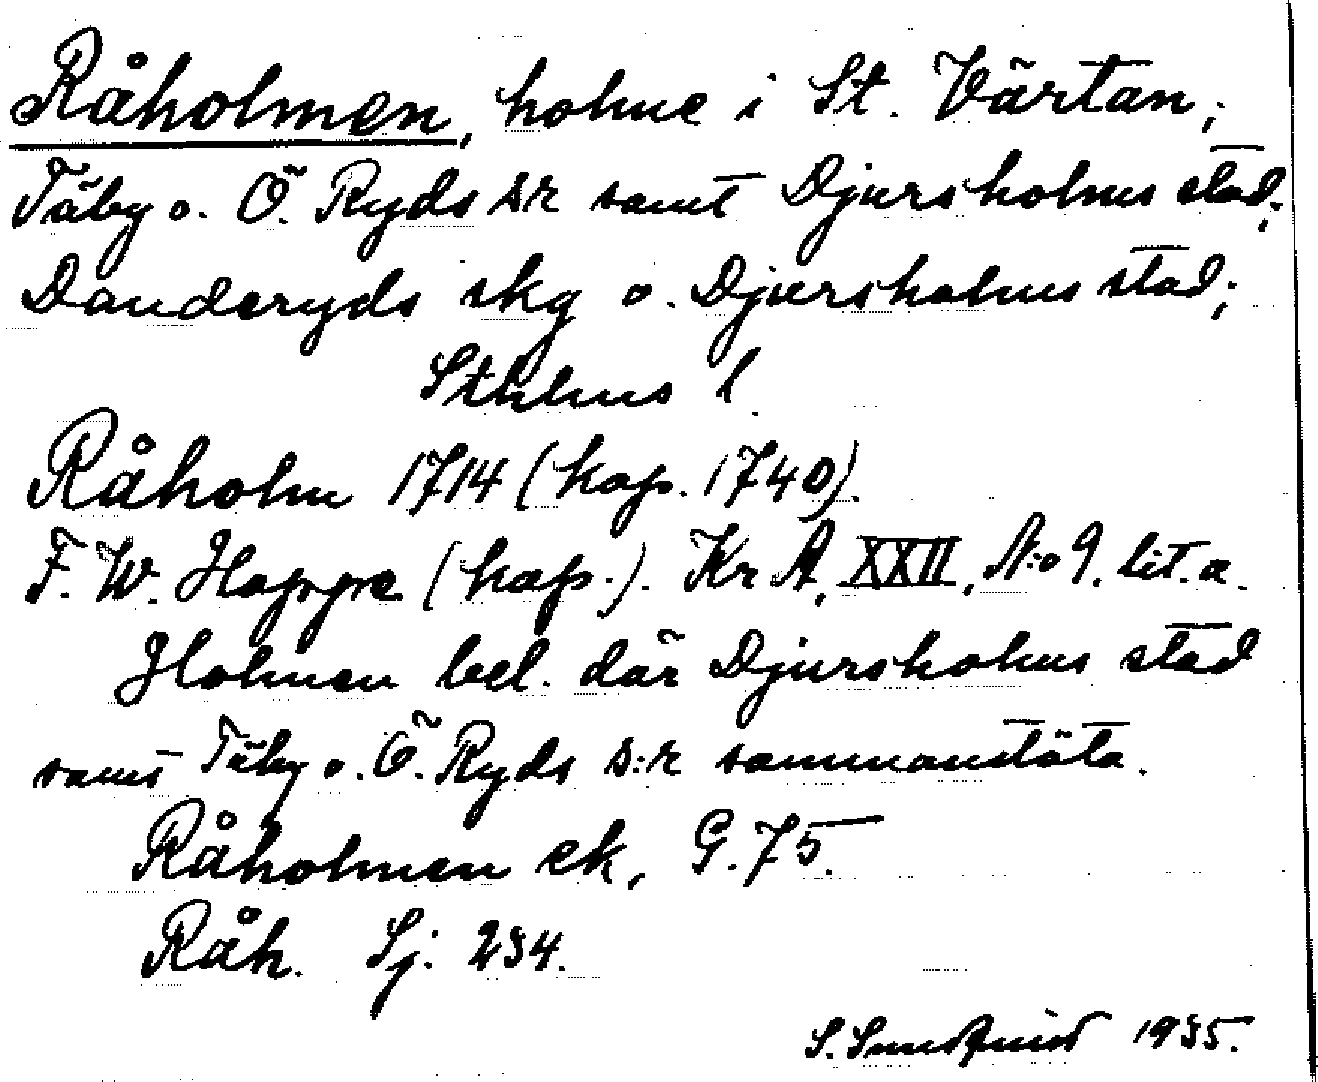 Råholmen, holme i St. Värtan,
Täby o. Ö. Ryds s:r samt Djursholms stad;
Danderyds skg o. Djursholms stad;
Sthlms l.
Råholm 1714 (kop. 1740).
F. W. Hoppe (kop.). Kr A, XXII, N:o 9. lit. a.
Holmen bel. där Djursholms stad
samt Täby o. Ö. Ryds s:r sammanstöta.
Råholmen ek, G. 75.
Råh. Sj. 234.
S. Sundquist 1935.